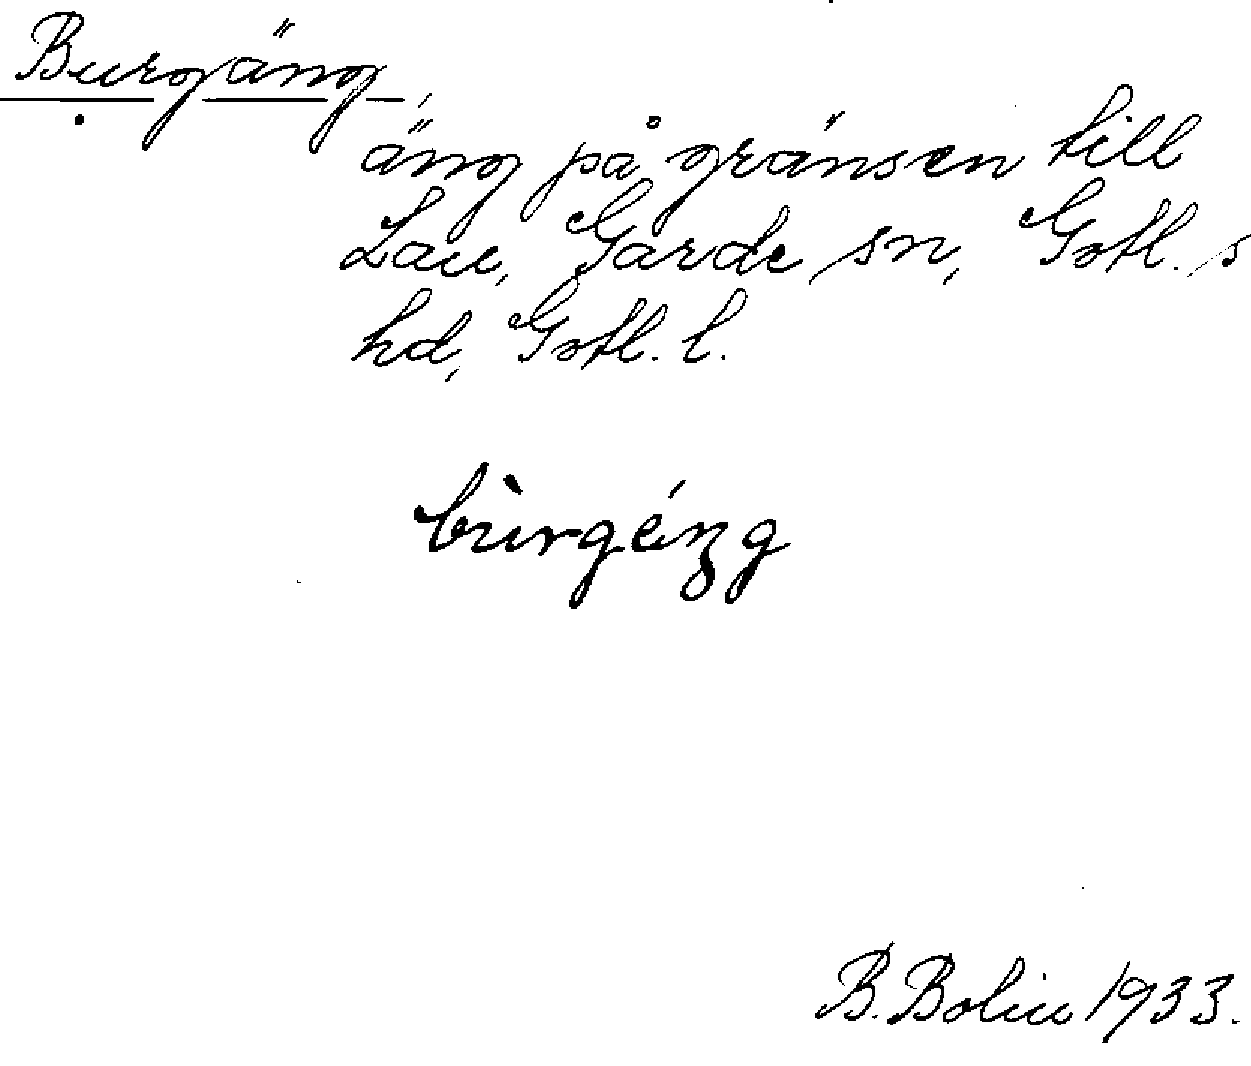 Burgäng,
äng på gränsen till
Lau, Garde sn, Gotl. s
hd, Gotl. l.
bùrgéŋg
B. Bolin 1933.